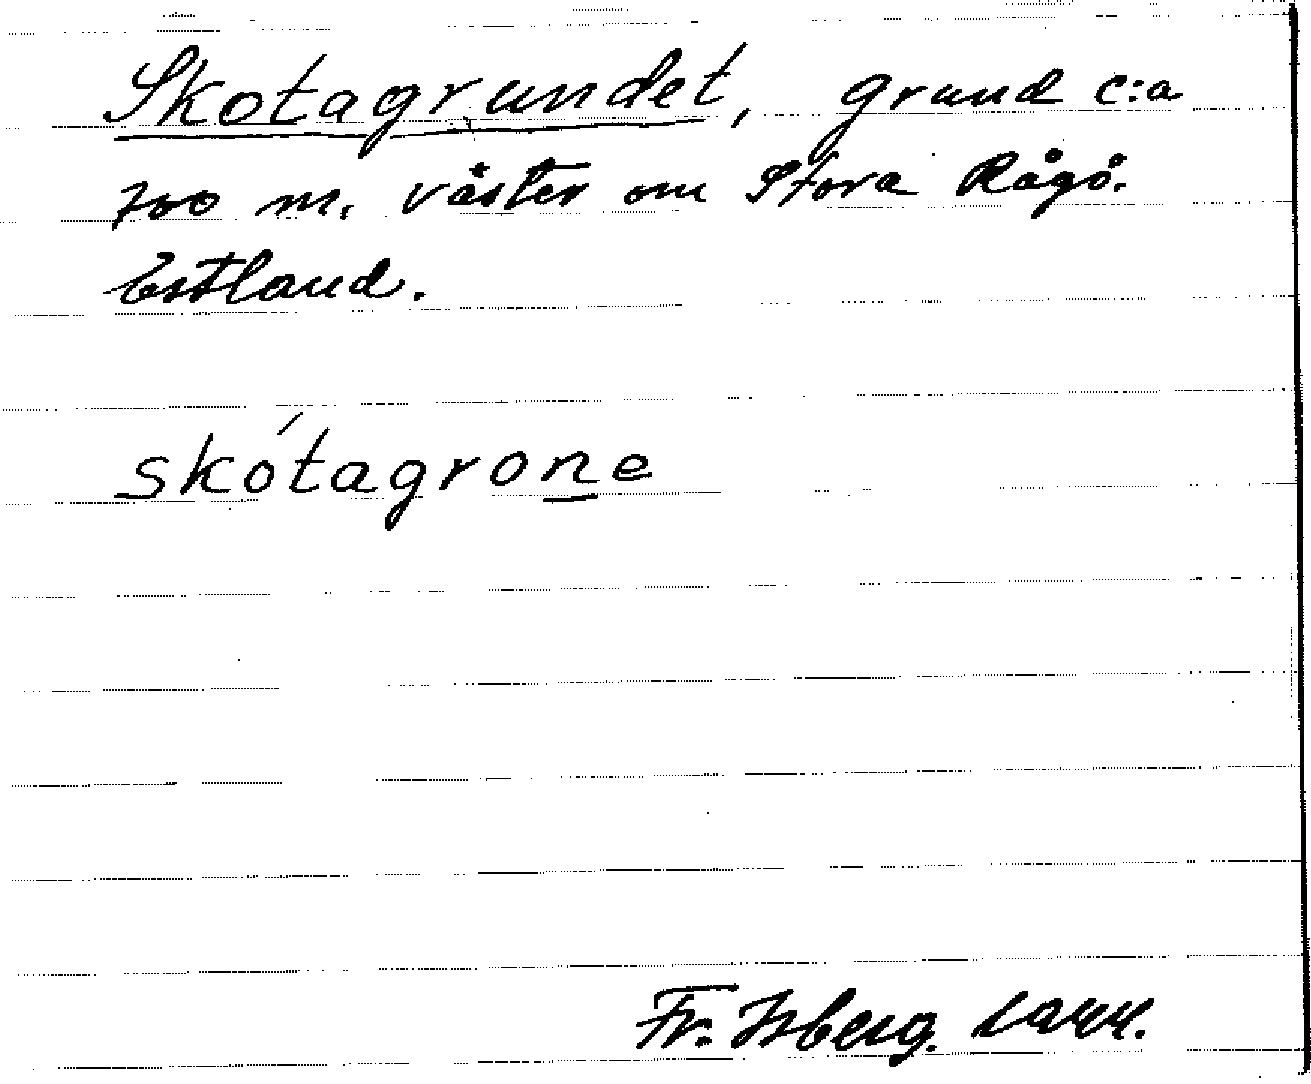 Skotagrundet, grund c:a
700 m. väster om Stora Rågö.
Estland.
skótagrone
Fr. Isberg. 1944.